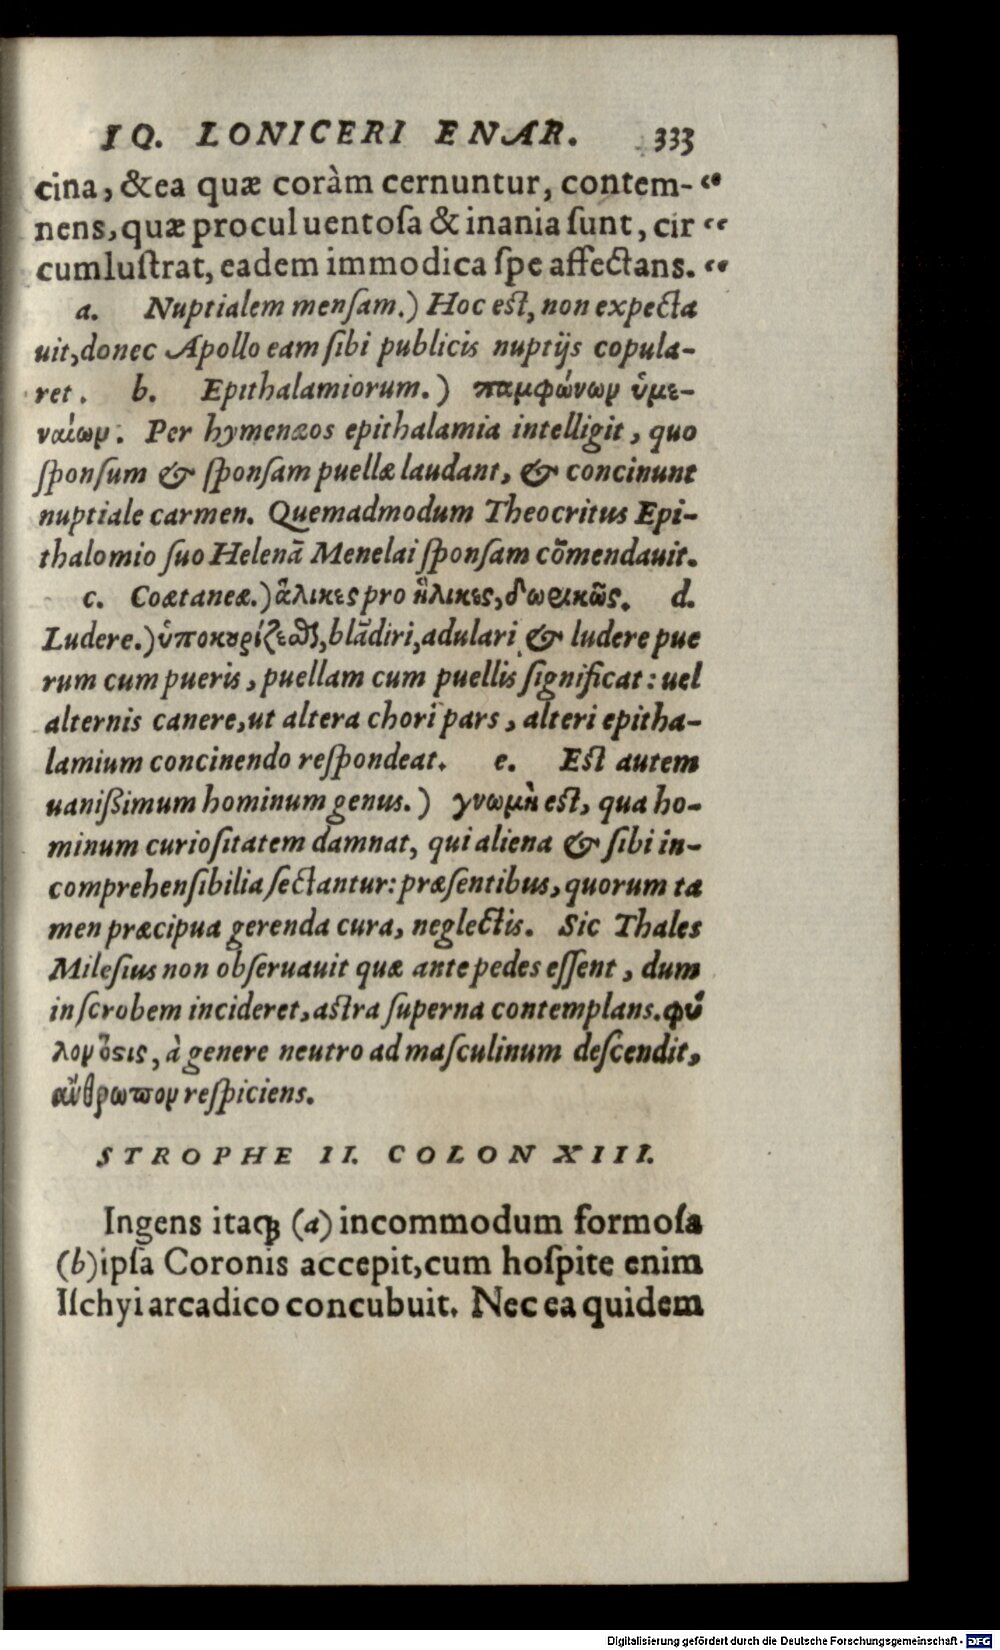 IO. LONICERI ENAR. 333
cina, & ea quæ coràm cernuntur, contem- “
nens, quæ procul uentoſa & inania ſunt, cir “
cumluſtrat, eadem immodica ſpe affectans. “
a. Nuptialem menſam.) Hoc eſt, non expecta
uit, donec Apollo eam ſibi publicis nuptijs copula-
ret. b. Epithalamiorum.) παμφώνων ὑμε-
ναίων. Per hymenæos epithalamia intelligit, quo
ſponſum & ſponſam puellæ laudant, & concinunt
nuptiale carmen. Quemadmodum Theocritus Epi-
thalomio ſuo Helenā Menelai ſponſam cōmendauit.
c. Coætaneæ.) ἅλικες pro ἥλικες, δωρικῶς. d.
Ludere.) ὑποκουρίζεσθαι, blādiri, adulari & ludere pue
rum cum pueris, puellam cum puellis ſignificat: uel
alternis canere, ut altera chori pars, alteri epitha-
lamium concinendo reſpondeat. e. Eſt autem
uanißimum hominum genus.) γνωμὴ eſt, qua ho-
minum curioſitatem damnat, qui aliena & ſibi in-
comprehenſibilia ſectantur: præſentibus, quorum ta
men præcipua gerenda cura, neglectis. Sic Thales
Mileſius non obſeruauit quæ ante pedes eſſent, dum
in ſcrobem incideret, aſtra ſuperna contemplans. φῦ
λον ὅστις, à genere neutro ad maſculinum deſcendit,
ἄνθρωπον reſpiciens.
STROPHE II. COLON XIII.
Ingens itaq; (a) incommodum formoſa
(b) ipſa Coronis accepit, cum hoſpite enim
Iſchyi arcadico concubuit. Nec ea quidem
Digitalisierung gefördert durch die Deutsche Forschungsgemeinschaft - DFG